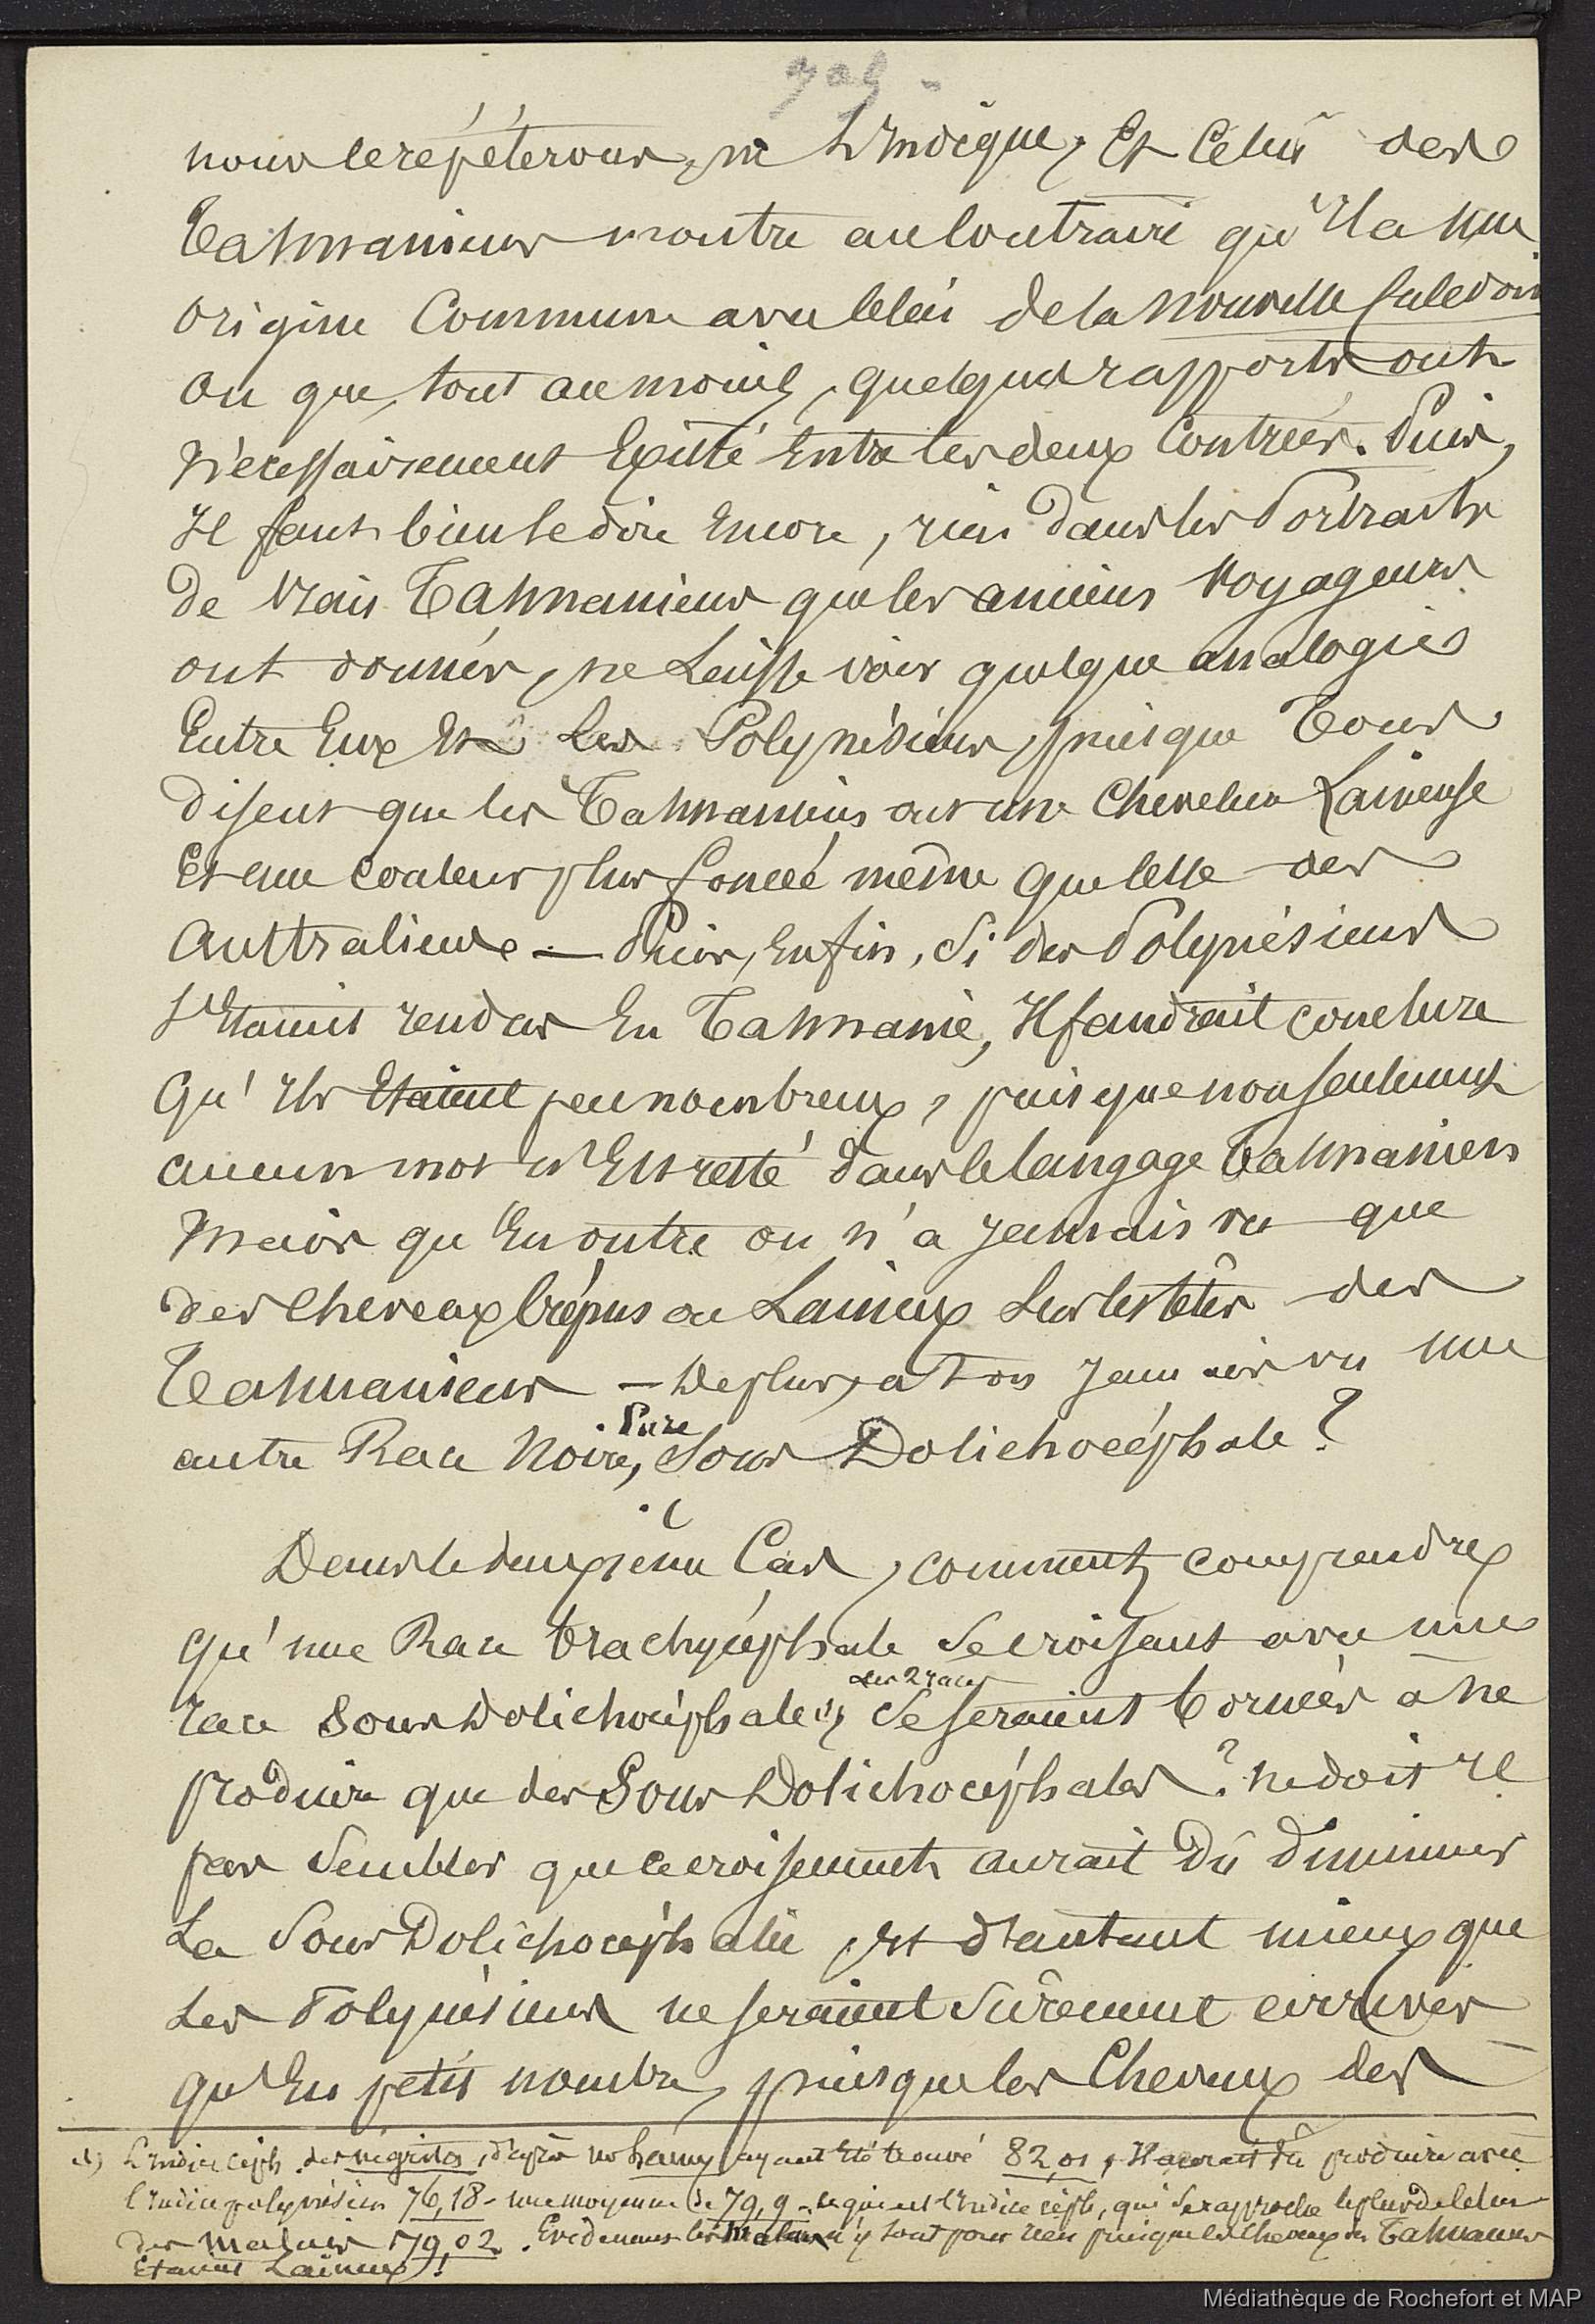 nous le répéterons, ne l'Indique, Et Celui des
Tasmaniens montre au Contraire qu'Il a une
Origine Commune avec Celui de la Nouvelle Calédonie
ou que, tout au moins, quelques rapports ont
Nécessairement Existé Entre les deux Contrées. Puis,
Il faut bien le dire Encore, rien dans les Portraits
de Vrais Tasmaniens que les anciens Voyageurs
ont donnés, ne Laisse voir quelque analogies
Entre Eux Et Les Polynésiens, puisque Tous
disent que les Tasmaniens ont une Chevelure Laineuse
Et une Couleur plus foncée même que Celle des
Australiens — Puis, Enfin, Si des Polynésiens
s'Etaient rendus En Tasmanie, Il faudrait conclure
Qu'Ils Etaient peu nombreux, puisque non seulement
aucun mot n'Est resté dans le langage Tasmanien
Mais qu'En outre on n'a Jamais vu que
des Cheveux Crépus ou Laineux Sur les têtes des
Tasmaniens — De plus, a t on Jamais vu une
autre Race Noire, Pure Sous Dolichocéphale ?
Dans le deuxième Cas, comment comprendre
qu'une Race brachycéphale Se croisant avec une
race Sous Dolichocéphale (1) les 2 races Se seraient bornées à ne
produire que des Sous Dolichocéphales ? ne doit Il
pas Sembler que ce croisement aurait Dû Diminuer
La Sous Dolichocéphalie, Et d'autant mieux que
Les Polynésiens ne seraient Sûrement arrivés
qu'En petit nombre, puisque les Cheveux des
(1) L'Indice céph. des négritos, d'après Mr Hamy ayant Eté trouvé 82,01, Il aurait dû produire avec
l'Indice polynésien 76,18 - une moyenne de 79,9 - ce qui est l'Indice céph, qui Se rapproche le plus de Celui
des Malais 79,02. Evidemment les Malais n'y sont pour rien puisque les Cheveux des Tasmaniens
Etaient Laineux !
Médiathèque de Rochefort et MAP